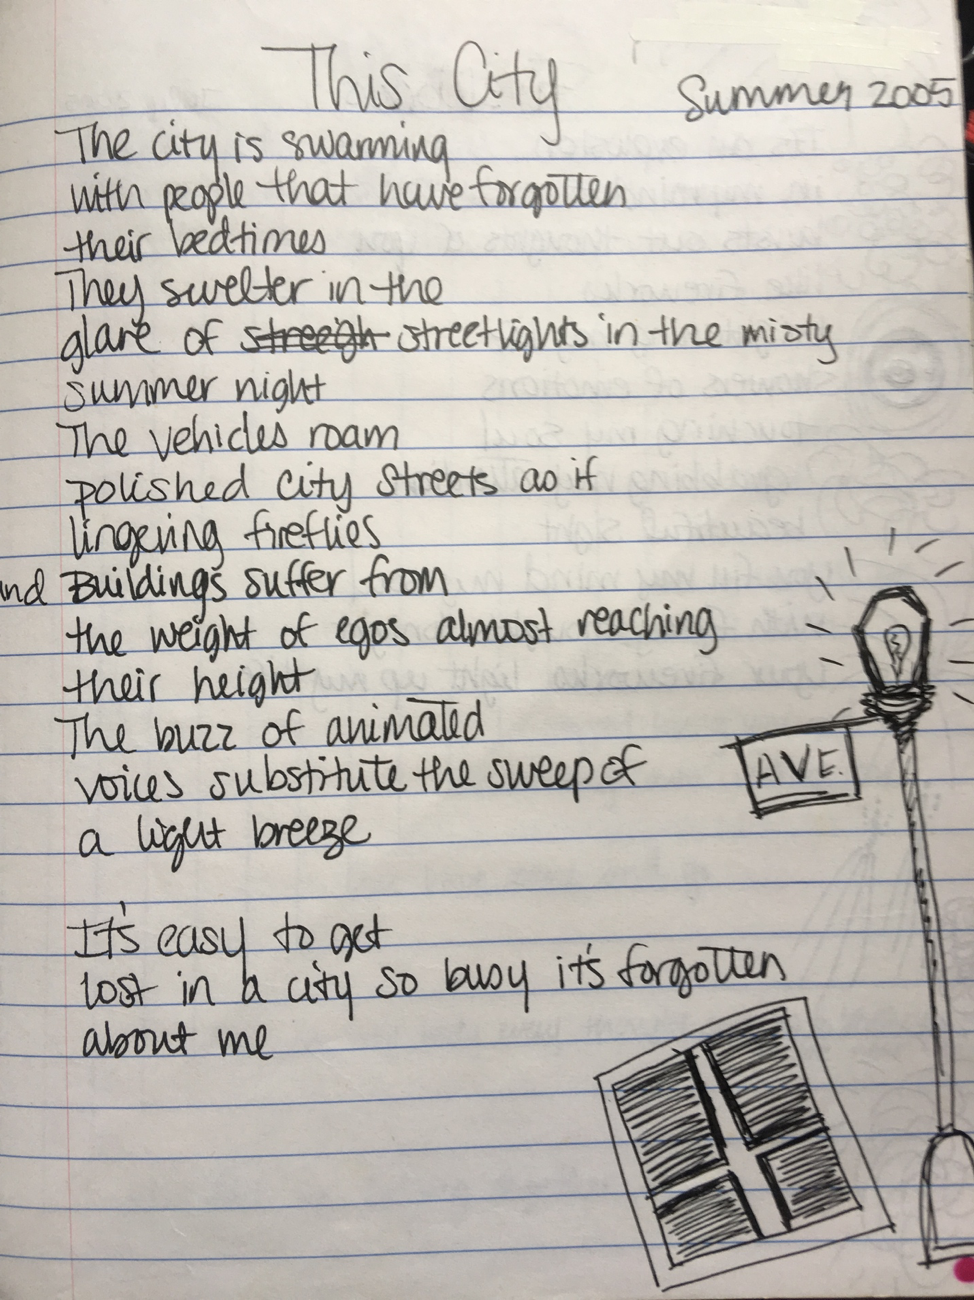 This City
Summer 2005
The city is swarming
with people that have forgotten
their bedtimes
They swelter in the
glare of streegh streetlights in the misty
summer night
The vehicles roam
polished city streets as if
lingering fireflies
and Buildings suffer from
the weight of egos almost reaching
their height
The buzz of animated
voices substitute the sweep of
a light breeze
It's easy to get
lost in a city so busy it's forgotten
about me
AVE.